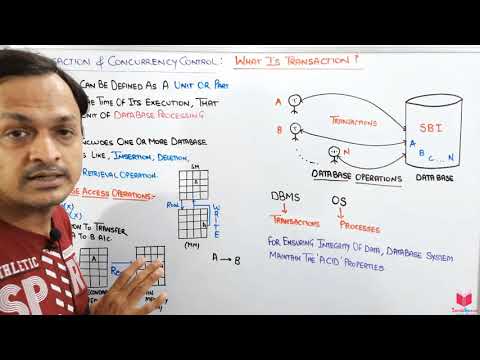 SACTION & CONCURRENCY CONTROL: WHAT IS TRANSACTION?
CAN BE DEFINED AS A UNIT OR PART
THE TIME OF ITS EXECUTION, THAT
ENT OF DATABASE PROCESSING
NCLUDES ONE OR MORE DATABASE
S LIKE, INSERTION, DELETION,
RETRIEVAL OPERATION.
SE ACCESS OPERATIONS:-
(X)
(X)
ION TO TRANSFER
A TO B A/C.
A
SM
A
READ
WRITE
A
(MM)
A → B
A
B
N
TRANSACTIONS
SBI
A
B
C...N
DATABASE OPERATIONS
DATABASE
DBMS
OS
TRANSACTIONS
PROCESSES
FOR ENSURING INTEGRITY OF DATA, DATABASE SYSTEM
MAINTAIN THE 'ACID' PROPERTIES
ATHLETIC
SP